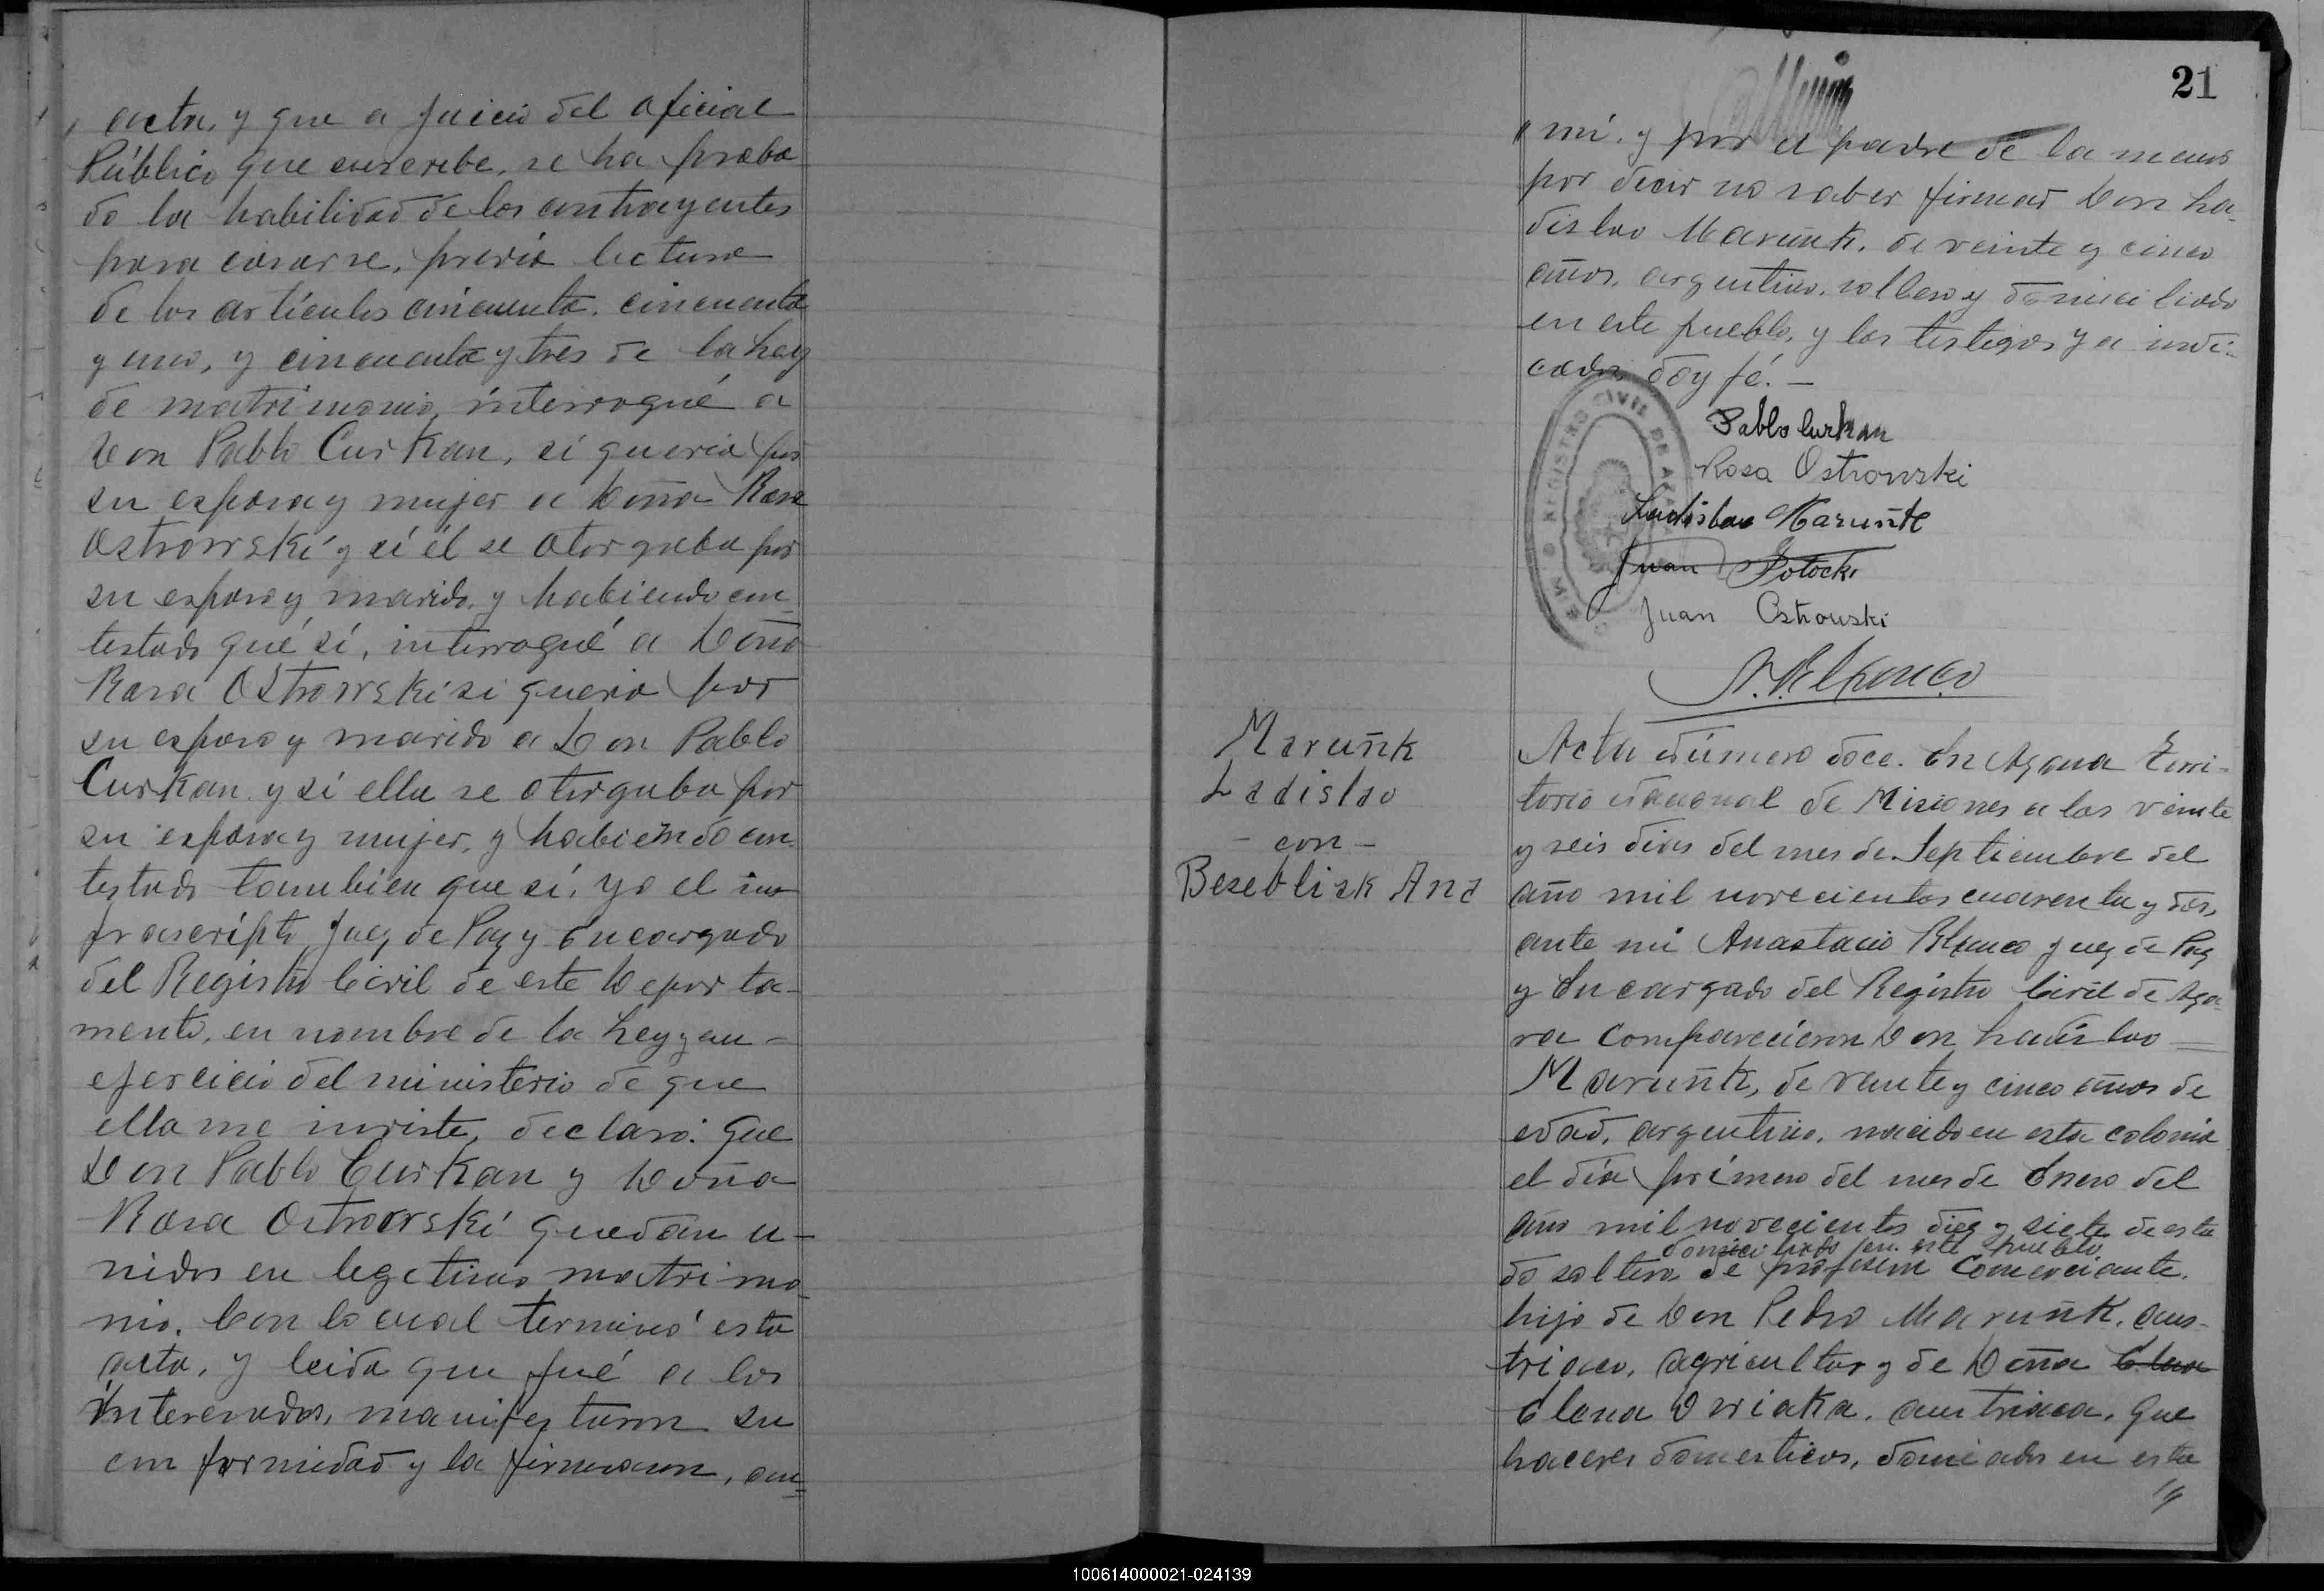 acta, y que a juicio del oficial
Público que suscribe, se ha proba
do la habilidad de los contrayentes
para casarse, previa lectura
de los artículos cincuenta, cincuenta
y uno, y cincuenta y tres de la Ley
de matrimonio, interrogué a
Don Pablo Curkan, si queria por
su esposa y mujer a Doña Rosa
Ostrowski y si él se otorgaba por
su esposo y marido, y habiendo con
testado qué sí, interrogué a Doña
Rosa Ostrowski si queria por
su esposo y marido a Don Pablo
Curkan y sí ella se otorgaba por
su esposa y mujer, y habiendo con
testado tambien que sí, yo el in
frascripto Juez de Paz y Encargado
del Registro Civil de este Departa-
mento, en nombre de la Ley y en -
ejercicio del ministerio de que
ella me inviste, declaro: Que
Don Pablo Curkan y Doña
Rosa Ostrowski quedan u-
nidos en legetimo matrimo
nio. Con lo cual terminó esta
acta, y leida que fué a los
interesados, manifestaron su
conformidad y la firmaron, con
21
" mí. y por el padre de la menor
por decir no saber firmar Don La-
dislao Maruñk, de veinte y cinco
años, argentino, soltero y domiciliado
en este pueblo, y los testigos ya indi-
cados, doy fé. -
REGISTRO CIVIL DE
Pablo Curkan
Rosa Ostrowski
Ladislao Maruñk
Juan Potocki
Juan Ostrouski
A. Blanco
Maruñk
Ladislao
- con -
Beseblisk Ana
Acta número doce. En Azara Terri-
torio nacional de Misiones a los veinte
y seis dias del mes de Septiembre del
año mil novecientos cuarenta y dos,
ante mi Anastacio Blanco Juez de Paz
y Encargado del Registro Civil de Aza-
ra comparecieron Don Ladislao
Maruñk, de veinte y cinco años de
edad, argentino, nacido en esta colonia
el día primero del mes de Enero del
año mil novecientos diez y siete de esta
domiciliado en este pueblo
do soltero de profesion comerciante,
hijo de Don Pedro Maruñk, aus-
triaco, agricultor y de Doña Elena
Elena Driaka, austriaca, que
haceres domesticos, domiados en esta
"
100614000021-024139